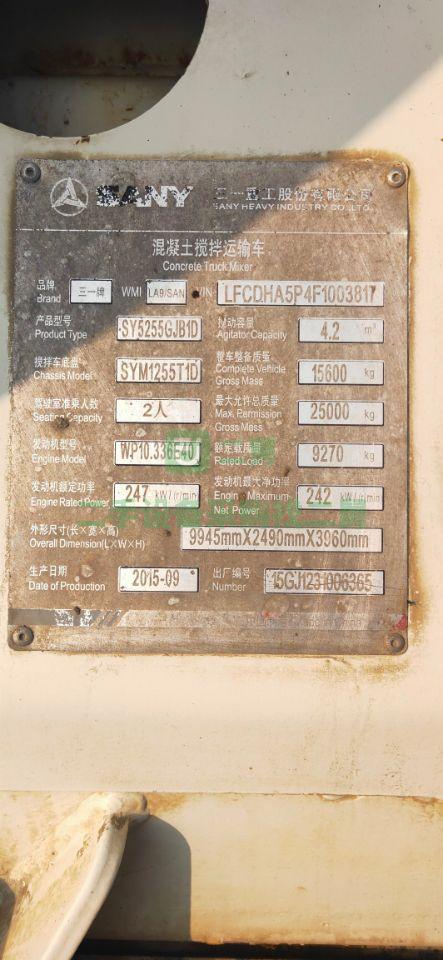 SANY 三一重工股份有限公司
SANY HEAVY INDUSTRY CO.,LTD.
混凝土搅拌运输车
Concrete Truck Mixer
品牌 三一牌 WMI LA9/SAN VIN LFCDHA5P4F1003817
Brand
产品型号 SY5255GJB1D 搅动容量 4.2 m³
Product Type Agitator Capacity
搅拌车底盘 SYM1255T1D 整车整备质量 15600 kg
Chassis Model Complete Vehicle
Gross Mass
驾驶室准乘人数 2人 最大允许总质量 25000 kg
Seating Capacity Max. Permission
Gross Mass
发动机型号 WP10.336E40 额定载质量 9270 kg
Engine Model Rated Load
发动机额定功率 247 kW/(r/min) 发动机最大净功率 242 kW/(r/min)
Engine Rated Power Engine Maximum
Net Power
外形尺寸(长×宽×高) 9945mmX2490mmX3960mm
Overall Dimension(L×W×H)
生产日期 2015-09 出厂编号 15GJ1231006365
Date of Production Number